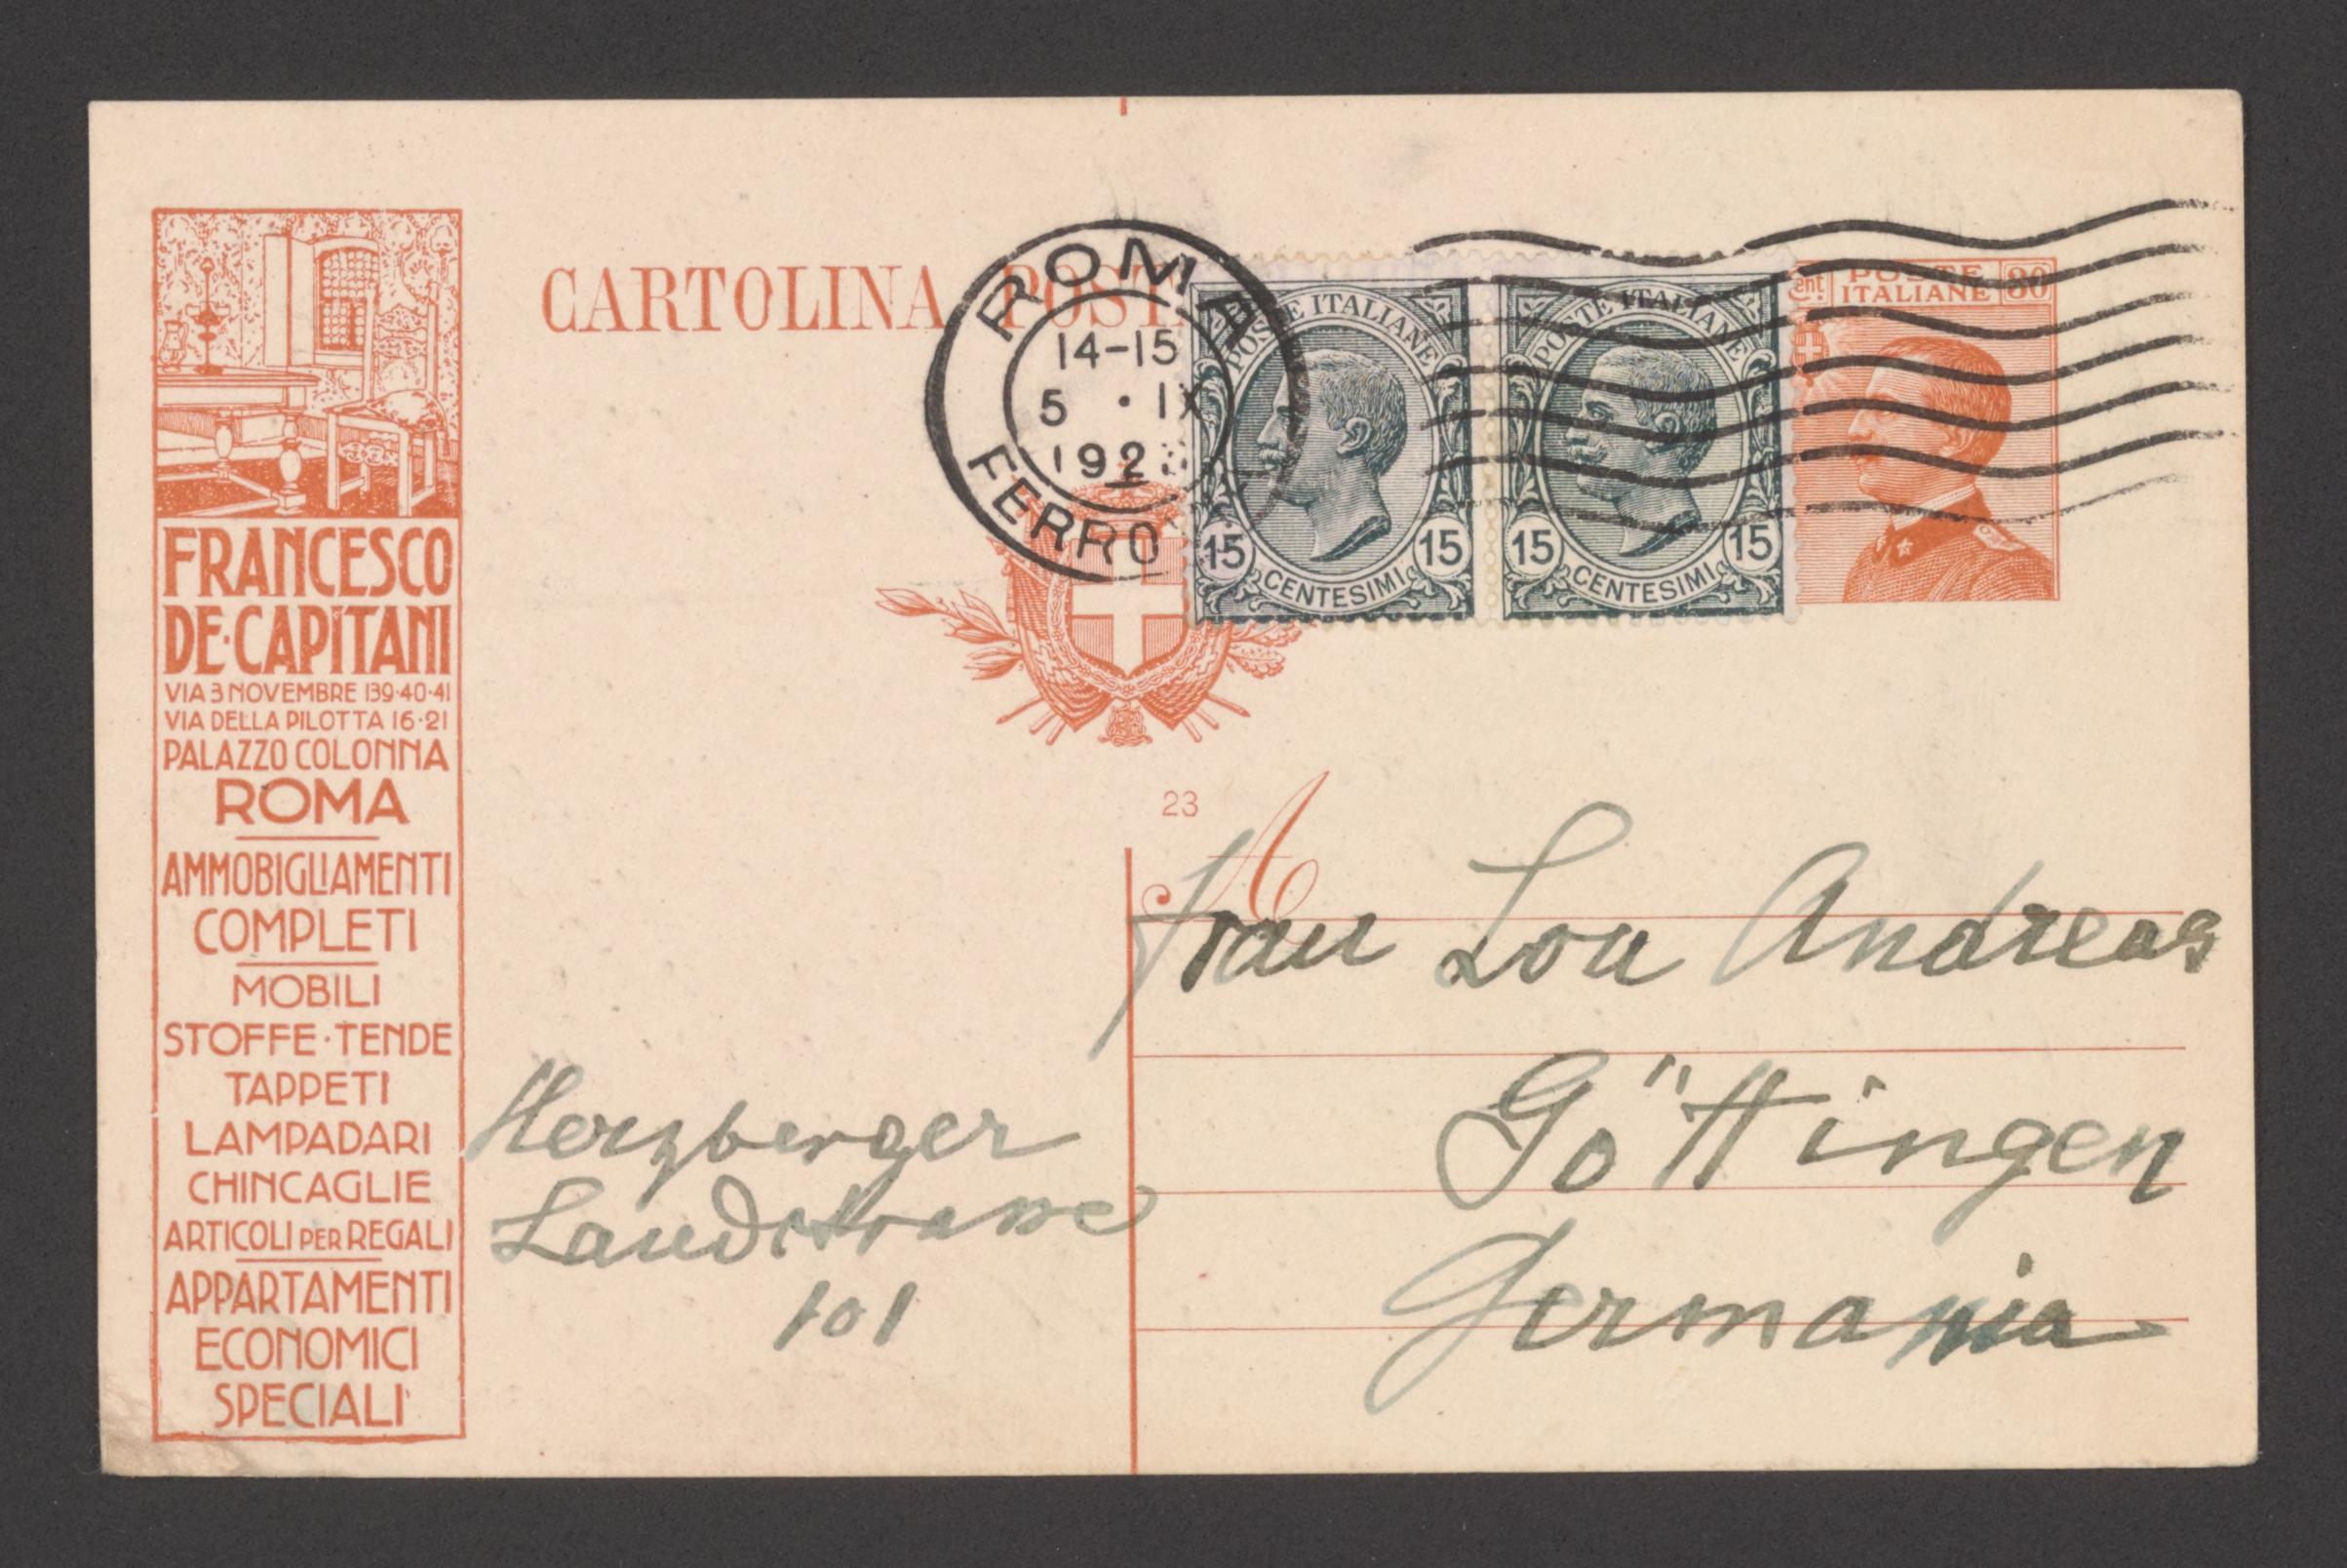 FRANCESCO
DE·CAPITANI
VIA 3 NOVEMBRE 139·40·41
VIA DELLA PILOTTA 16·21
PALAZZO COLONNA
ROMA
AMMOBIGLIAMENTI
COMPLETI
MOBILI
STOFFE·TENDE
TAPPETI
LAMPADARI
CHINCAGLIE
ARTICOLI PER REGALI
APPARTAMENTI
ECONOMICI
SPECIALI
CARTOLINA POST
ROMA
14-15
5 · IX
192
FERRO
POSTE ITALIANE
15 15
CENTESIMI
POSTE ITALIANE
15 15
CENTESIMI
cent. POSTE ITALIANE 30
23
A
Frau Lou Andreas
Göttingen
Germania
Herzberger
Landstrasse
101